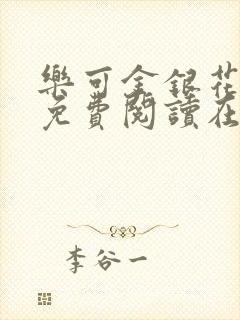 樂可金銀花
免費閱讀在
李谷一